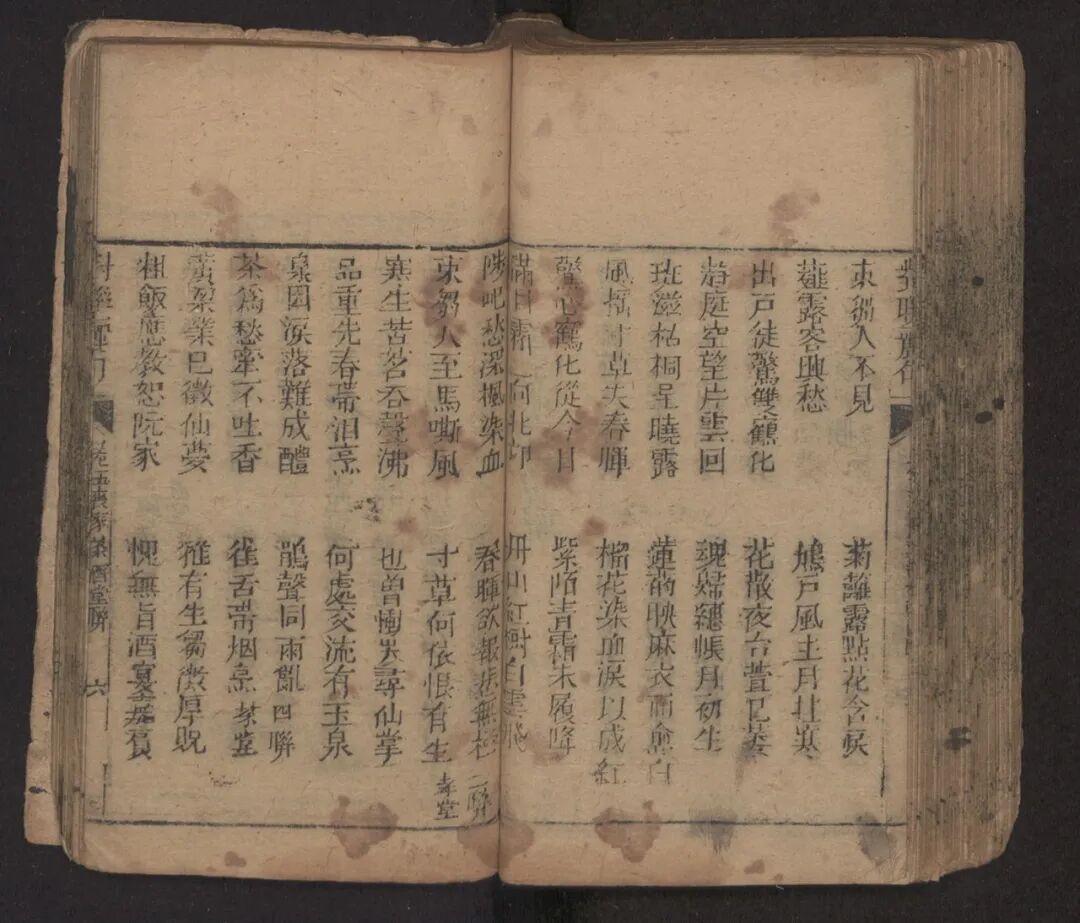 束芻人不見　菊蘿露點花含淚
薤露客興愁　鳩戶風生月壯寒
出戶徒驚雙鶴化　花散夜台萱已萎
趨庭空望片雲回　魂歸繐帳月初生
班滋枯桐呈曉露　蓮的映麻衣而愈白
風搖寸草失春暉　榴花染血淚以成紅
驚心鶴化從今日　紫陌青霜未履降
滿目霜　向北卬　丹山紅樹白雲飛
陟屺愁深楓染血　春暉欲報悲無極　二聯
束芻人至馬嘶風　寸草何依恨有生　孝堂
寒生苦茗吞聲沸　也曾慟哭尋仙掌
品重先春帶泪烹　何處交流有玉泉
泉因淚落難成醴　鵑聲同雨飢　四聯
茶為愁牽不吐香　雀舌帶烟烹　茶堂
黃粱業已徵仙夢　雅有生芻徵厚貺
粗飯應教恕阮家　愧無旨酒宴嘉賓
六